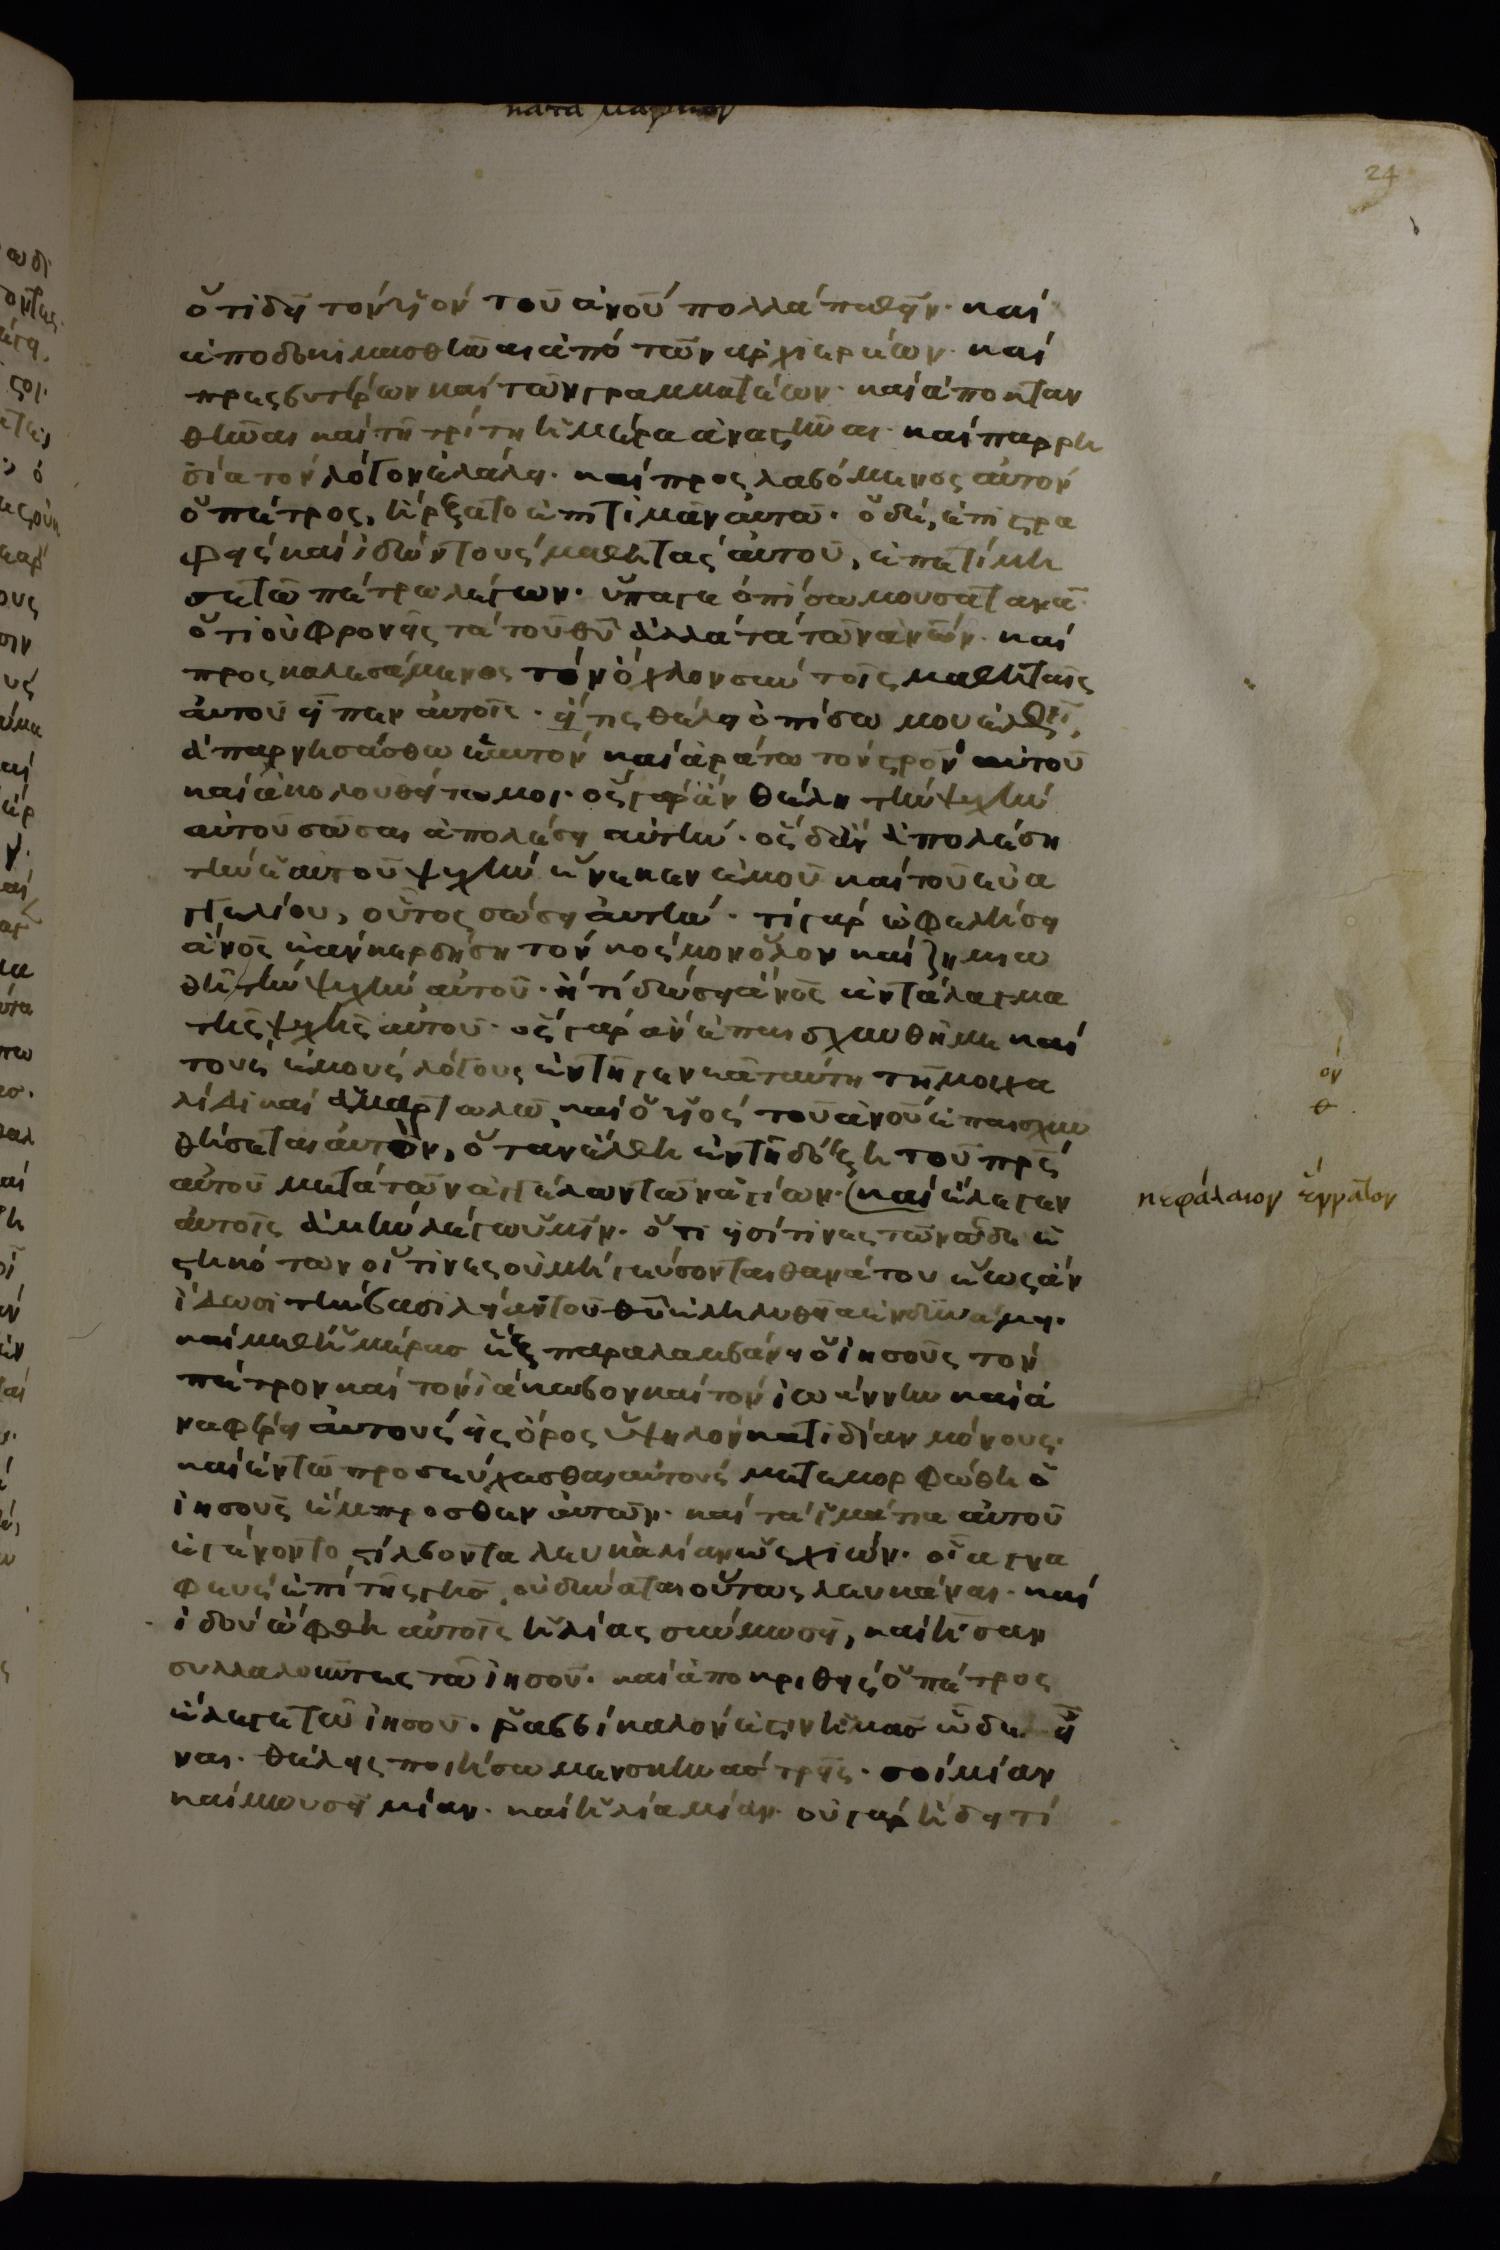 κατα μαρκον
24
ὅτι δεῖ τὸν υἱὸν τοῦ ἀνοῦ πολλὰ παθεῖν· καὶ
ἀποδοκιμασθῆναι ἀπὸ τῶν ἀρχιερέων· καὶ
πρεσβυτέρων καὶ τῶν γραμματέων· καὶ ἀποκταν
θῆναι καὶ τῆ τρίτη ἡμέρα ἀναστῆναι· καὶ παρρη
σία τὸν λόγον ἐλάλει· καὶ προσλαβόμενος αὐτὸν
ὁ πέτρος, ἤρξατο ἐπιτιμᾶν αὐτῶ· ὁ δὲ, ἐπιστρα
φεὶς καὶ ἰδὼν τοὺς μαθητὰς αὐτοῦ, ἐπετίμη
σε τῶ πέτρω λέγων· ὕπαγε ὀπίσω μου σατανᾶ·
ὅτι οὐ φρονεῖς τὰ τοῦ θῦ ἀλλὰ τὰ τῶν ἀνῶν· καὶ
προσκαλεσάμενος τὸν ὄχλον σὺν τοῖς μαθηταῖς
αὐτοῦ εἶπεν αὐτοῖς· εἴ τις θέλει ὀπίσω μου ἐλθεῖν,
ἀπαρνησάσθω ἑαυτὸν καὶ ἀράτω τὸν σρὸν αὐτοῦ
καὶ ἀκολουθείτω μοι· ὃς γὰρ ἂν θέλη τὴν ψυχὴν
αὐτοῦ σῶσαι ἀπολέσει αὐτήν· ὃς δ' ἂν ἀπολέση
τὴν ἑαυτοῦ ψυχὴν ἕνεκεν ἐμοῦ καὶ τοῦ εὐα
γγελίου, οὗτος σώσει αὐτήν· τί γὰρ ὠφελήσει
ἀνος ἐὰν κερδήση τὸν κόσμον ὅλον καὶ ζημιω
θῆ τὴν ψυχὴν αὐτοῦ· ἢ τί δώσει ἀνος ἀντάλαγμα
τῆς ψυχῆς αὐτοῦ· ὃς γὰρ ἂν ἐπαισχυνθῆ με καὶ
τοὺς ἐμοὺς λόγους ἐν τῆ γενεᾶ ταύτη τῆ μοιχα
λίδι καὶ ἁμαρτωλῶ, καὶ ὁ υἱὸς τοῦ ἀνοῦ ἐπαισχυν
θήσεται αὐτὸν, ὅταν ἔλθη ἐν τῆ δόξη τοῦ πρς
αὐτοῦ μετὰ τῶν ἀγγέλων τῶν ἁγίων· καὶ ἔλεγεν
αὐτοῖς ἀμὴν λέγω ὑμῖν· ὅτι εἰσί τινες τῶν ὧδε ἑ
στηκότων οἵτινες οὐ μὴ γεύσονται θανάτου ἕως ἂν
ἴδωσι τὴν βασιλείαν τοῦ θῦ ἐληλυθῆα ἐν δυνάμει·
καὶ μεθ' ἡμέρας ἓξ παραλαμβάνει ὁ ἰησοῦς τὸν
πέτρον καὶ τὸν ἰάκωβον καὶ τὸν ἰωάννην καὶ ἀ
ναφέρει αὐτοὺς εἰς ὄρος ὑψηλὸν κατ' ἰδίαν μόνους·
καὶ ἐν τῶ προσεύχεσθαι αὐτοὺς μετεμορφώθη ὁ
ἰησοῦς ἔμπροσθεν αὐτῶν· καὶ τὰ ἱμάτια αὐτοῦ
ἐγένοντο στίλβοντα λευκὰ λίαν ὡς χιών· οἷα γνα
φεὺς ἐπὶ τῆς γῆς, οὐ δύναται οὕτως λευκάναι· καὶ
ἰδοὺ ὤφθη αὐτοῖς ἡλίας σὺν μωσῆ, καὶ ἦσαν
συλλαλοῦντες τῶ ἰησοῦ· καὶ ἀποκριθεὶς ὁ πέτρος
ἔλεγε τῶ ἰησοῦ· ῥαββὶ καλόν ἐστιν ἡμᾶς ὧδε εἶ
ναι· θέλεις ποιήσωμεν σκηνὰς τρεῖς· σοὶ μίαν
καὶ μωυσεῖ μίαν· καὶ ἡλία μίαν· οὐ γὰρ ἤδει τί
ον
θ
κεφάλαιον ἔννατον